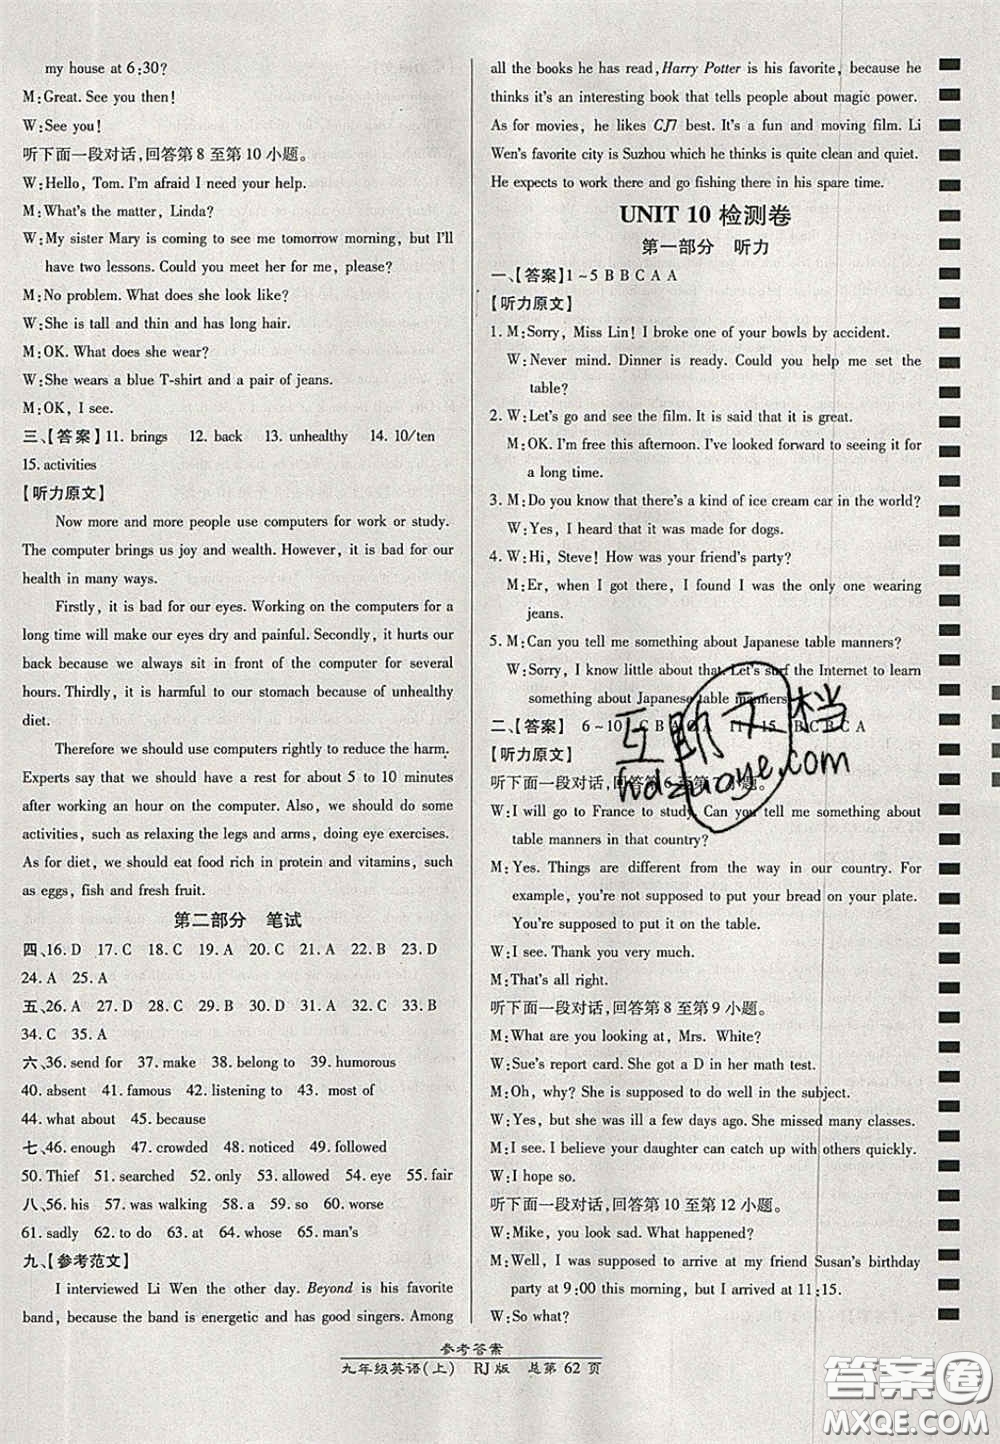 my house at 6:30?
M: Great. See you then!
W: See you!
听下面一段对话,回答第 8 至第 10 小题。
W: Hello, Tom. I'm afraid I need your help.
M: What's the matter, Linda?
W: My sister Mary is coming to see me tomorrow morning, but I'll
have two lessons. Could you meet her for me, please?
M: No problem. What does she look like?
W: She is tall and thin and has long hair.
M: OK. What does she wear?
W: She wears a blue T-shirt and a pair of jeans.
M: OK, I see.
三、【答案】11. brings 12. back 13. unhealthy 14. 10/ten
15. activities
【听力原文】
Now more and more people use computers for work or study.
The computer brings us joy and wealth. However, it is bad for our
health in many ways.
Firstly, it is bad for our eyes. Working on the computers for a
long time will make our eyes dry and painful. Secondly, it hurts our
back because we always sit in front of the computer for several
hours. Thirdly, it is harmful to our stomach because of unhealthy
diet.
Therefore we should use computers rightly to reduce the harm.
Experts say that we should have a rest for about 5 to 10 minutes
after working an hour on the computer. Also, we should do some
activities, such as relaxing the legs and arms, doing eye exercises.
As for diet, we should eat food rich in protein and vitamins, such
as eggs, fish and fresh fruit.
第二部分 笔试
四、16. D 17. C 18. C 19. A 20. C 21. A 22. B 23. D
24. A 25. A
五、26. A 27. D 28. A 29. D 30. B 31. A 32. C 33. B
34. C 35. A
六、36. send for 37. make 38. belong to 39. humorous
40. absent 41. famous 42. listening to 43. most of
44. what about 45. because
七、46. enough 47. crowded 48. noticed 49. followed
50. Thief 51. searched 52. only 53. allowed 54. eye 55. fair
八、56. his 57. was walking 58. a 59. out 60. man's
61. sadly 62. to do 63. at 64. interested 65. when
九、【参考范文】
I interviewed Li Wen the other day. Beyond is his favorite
band, because the band is energetic and has good singers. Among
all the books he has read, Harry Potter is his favorite, because he
thinks it's an interesting book that tells people about magic power.
As for movies, he likes CJ7 best. It's a fun and moving film. Li
Wen's favorite city is Suzhou which he thinks is quite clean and quiet.
He expects to work there and go fishing there in his spare time.
UNIT 10 检测卷
第一部分 听力
一、【答案】1~5 B B C A A
【听力原文】
1. M: Sorry, Miss Lin! I broke one of your bowls by accident.
W: Never mind. Dinner is ready. Could you help me set the
table?
2. W: Let's go and see the film. It is said that it is great.
M: OK. I'm free this afternoon. I've looked forward to seeing it for
a long time.
3. M: Do you know that there's a kind of ice cream car in the world?
W: Yes, I heard that it was made for dogs.
4. W: Hi, Steve! How was your friend's party?
M: Er, when I got there, I found I was the only one wearing
jeans.
5. M: Can you tell me something about Japanese table manners?
W: Sorry, I know little about that. Let's surf the Internet to learn
something about Japanese table manners.
二、【答案】 6~10 C B A 11~15 B C B C A
【听力原文】
听下面一段对话,回答第 6 至第 7 小题。
W: I will go to France to study. Can you tell me something about
table manners in that country?
M: Yes. Things are different from the way in our country. For
example, you're not supposed to put your bread on your plate,
You're supposed to put it on the table.
W: I see. Thank you very much.
M: That's all right.
听下面一段对话,回答第 8 至第 9 小题。
M: What are you looking at, Mrs. White?
W: Sue's report card. She got a D in her math test.
M: Oh, why? She is supposed to do well in the subject.
W: Yes, but she was ill a few days ago. She missed many classes.
M: I see. I believe your daughter can catch up with others quickly.
W: I hope so.
听下面一段对话,回答第 10 至第 12 小题。
W: Mike, you look sad. What happened?
M: Well, I was supposed to arrive at my friend Susan's birthday
party at 9:00 this morning, but I arrived at 11:15.
W: So what?
参考答案
九年级英语(上) RJ版 总第 62 页
互助文档
hdzuoye.com
答案圈
MXQE.COM